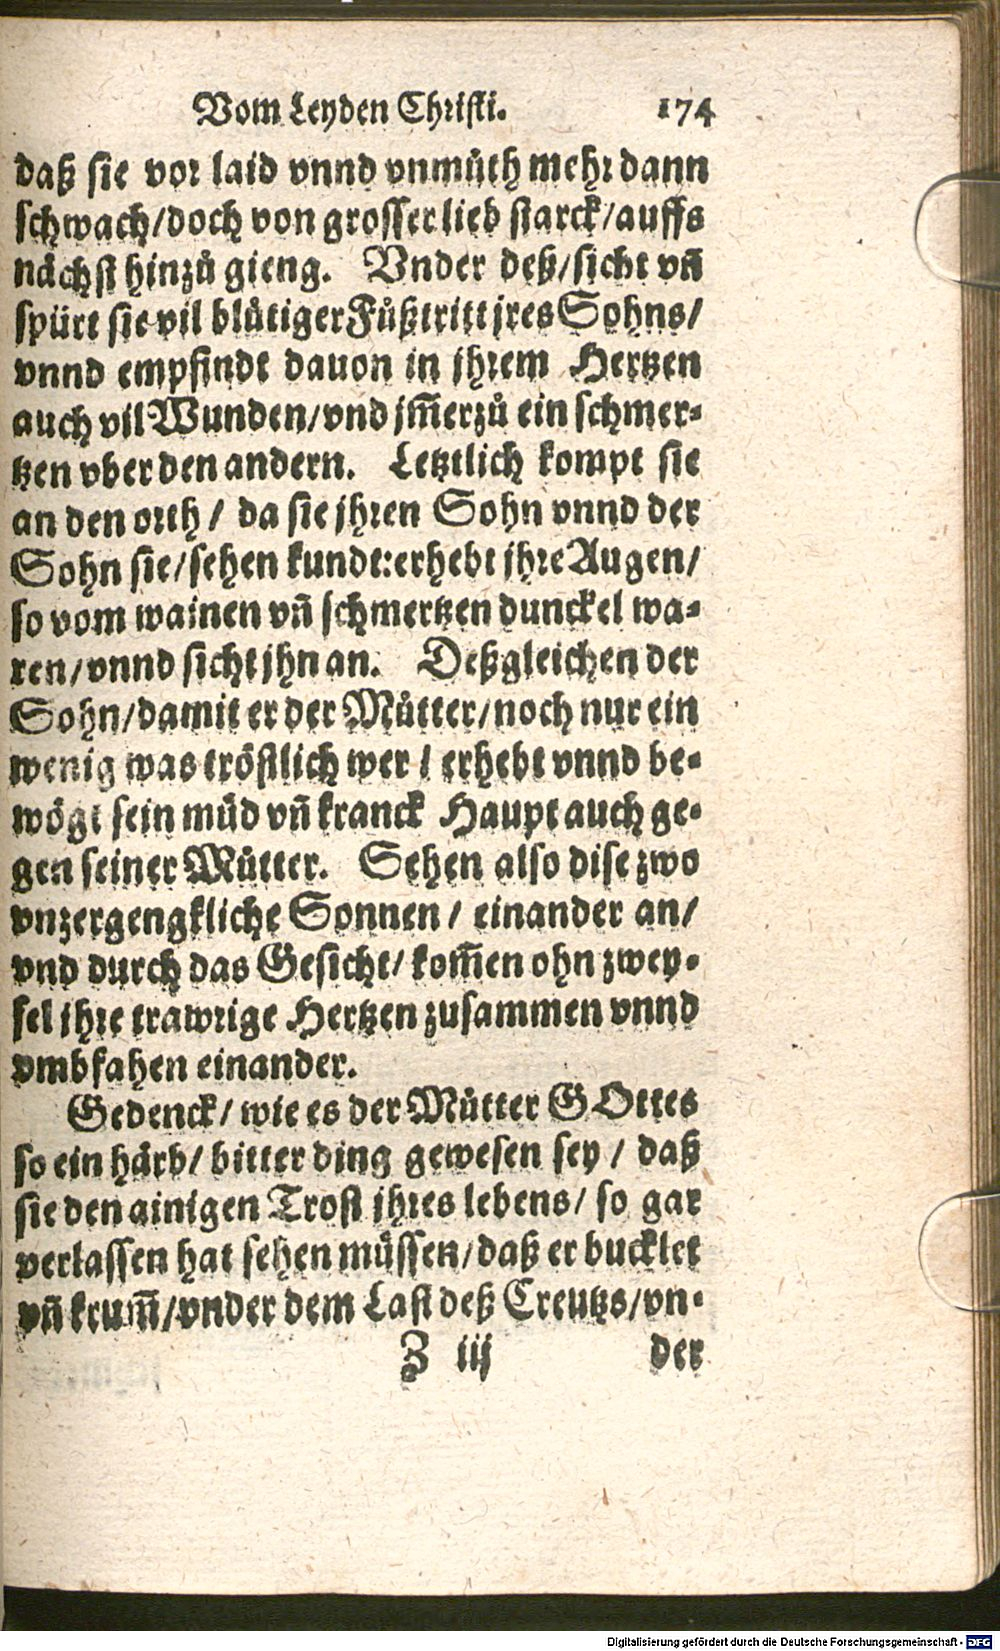 Vom Leyden Christi. 174
daß sie vor laid vnnd vnmůth mehr dann
schwach/doch von grosser lieb starck/auffs
nächst hinzů gieng. Vnder deß/sicht vñ
spürt sie vil blůtiger Fůßtritt jres Sohns/
vnnd empfindt dauon in jhrem Hertzen
auch vil Wunden/vnd jm̃erzů ein schmer-
tzen vber den andern. Letztlich kompt sie
an den orth/ da sie jhren Sohn vnnd der
Sohn sie/sehen kundt:erhebt jhre Augen/
so vom wainen vñ schmertzen dunckel wa-
ren/vnnd sicht jhn an. Deßgleichen der
Sohn/damit er der Můtter/noch nur ein
wenig was tröstlich wer/ erhebt vnnd be-
wögt sein müd vñ kranck Haupt auch ge-
gen seiner Můtter. Sehen also dise zwo
vnzergengkliche Sonnen/ einander an/
vnd durch das Gesicht/ kom̃en ohn zwey-
fel jhre trawrige Hertzen zusammen vnnd
vmbfahen einander.
Gedenck/ wie es der Můtter GOttes
so ein härb/ bitter ding gewesen sey/ daß
sie den ainigen Trost jhres lebens/ so gar
verlassen hat sehen müssen/daß er bucklet
vñ krum̃/vnder dem Last deß Creutzs/vn-
Z iij der
Digitalisierung gefördert durch die Deutsche Forschungsgemeinschaft - DFG